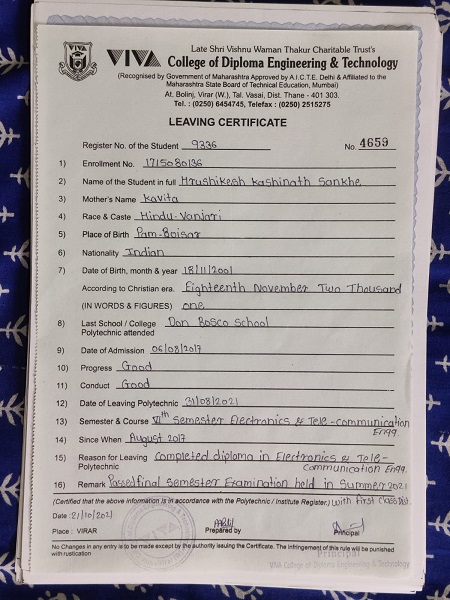 VIVA
Late Shri Vishnu Waman Thakur Charitable Trust's
VIVA College of Diploma Engineering & Technology
(Recognised by Government of Maharashtra Approved by A.I.C.T.E. Delhi & Affiliated to the
Maharashtra State Board of Technical Education, Mumbai)
At. Bolinj, Virar (W.), Tal. Vasai, Dist. Thane - 401 303.
Tel. : (0250) 6454745, Telefax : (0250) 2515275
LEAVING CERTIFICATE
Register No. of the Student 9336 No. 4659
1) Enrollment No. 1715080136
2) Name of the Student in full Hrushikesh Kashinath Sankhe
3) Mother's Name Kavita
4) Race & Caste Hindu-Vanjari
5) Place of Birth Pam-Boisar
6) Nationality Indian
7) Date of Birth, month & year 18/11/2001
According to Christian era. Eighteenth November Two Thousand
(IN WORDS & FIGURES) one
8) Last School / College Don Bosco School
Polytechnic attended
9) Date of Admission 06/08/2017
10) Progress Good
11) Conduct Good
12) Date of Leaving Polytechnic 31/08/2021
13) Semester & Course VIth Semester Electronics & Tele-communication
Engg.
14) Since When August 2017
15) Reason for Leaving Completed diploma in Electronics & Tele-
Polytechnic communication Engg.
16) Remark Passed final semester Examination held in Summer 2021
(Certified that the above information is in accordance with the Polytechnic / Institute Register.) with first class Dist.
Date : 21/10/2021
Place : VIRAR Prepared by Principal
No Changes in any entry is to be made except by the authority issuing the Certificate. The infringement of this rule will be punished
with rustication
Principal
VIVA College of Diploma Engineering & Technology